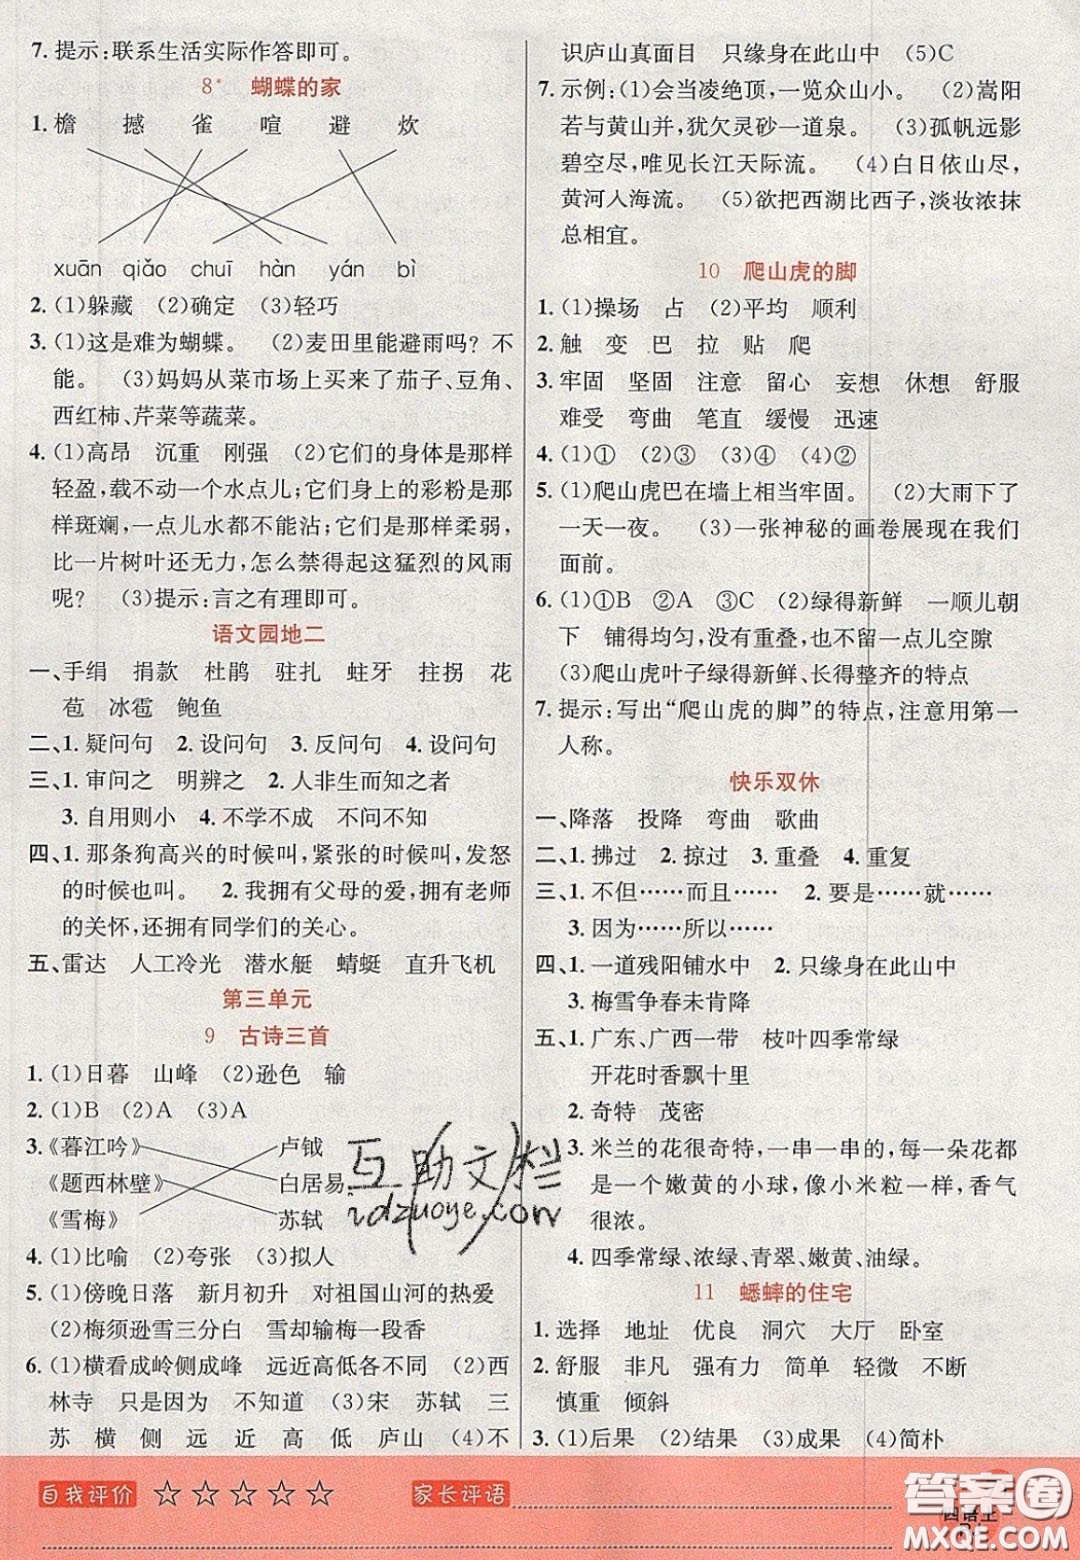 7. 提示:联系生活实际作答即可。
8* 蝴蝶的家
1. 檐 撼 雀 喧 避 炊
xuān qiǎo chuī hàn yán bì
2. (1)躲藏 (2)确定 (3)轻巧
3. (1)这是难为蝴蝶。 (2)麦田里能避雨吗? 不
能。 (3)妈妈从菜市场上买来了茄子、豆角、
西红柿、芹菜等蔬菜。
4. (1)高昂 沉重 刚强 (2)它们的身体是那样
轻盈,载不动一个水点儿;它们身上的彩粉是那
样斑斓,一点儿水都不能沾;它们是那样柔弱,
比一片树叶还无力,怎么禁得起这猛烈的风雨
呢? (3)提示:言之有理即可。
语文园地二
一、手绢 捐款 杜鹃 驻扎 蛀牙 拄拐 花
苞 冰雹 鲍鱼
二、1. 疑问句 2. 设问句 3. 反问句 4. 设问句
三、1. 审问之 明辨之 2. 人非生而知之者
3. 自用则小 4. 不学不成 不问不知
四、1. 那条狗高兴的时候叫,紧张的时候叫,发怒
的时候也叫。 2. 我拥有父母的爱,拥有老师
的关怀,还拥有同学们的关心。
五、雷达 人工冷光 潜水艇 蜻蜓 直升飞机
第三单元
9 古诗三首
1. (1)日暮 山峰 (2)逊色 输
2. (1)B (2)A (3)A
3. 《暮江吟》 卢钺
《题西林壁》 白居易
《雪梅》 苏轼
4. (1)比喻 (2)夸张 (3)拟人
5. (1)傍晚日落 新月初升 对祖国山河的热爱
(2)梅须逊雪三分白 雪却输梅一段香
6. (1)横看成岭侧成峰 远近高低各不同 (2)西
林寺 只是因为 不知道 (3)宋 苏轼 三
苏 横 侧 远 近 高 低 庐山 (4)不
识庐山真面目 只缘身在此山中 (5)C
7. 示例:(1)会当凌绝顶,一览众山小。 (2)嵩阳
若与黄山并,犹欠灵砂一道泉。 (3)孤帆远影
碧空尽,唯见长江天际流。 (4)白日依山尽,
黄河入海流。 (5)欲把西湖比西子,淡妆浓抹
总相宜。
10 爬山虎的脚
1. (1)操场 占 (2)平均 顺利
2. 触 变 巴 拉 贴 爬
3. 牢固 坚固 注意 留心 妄想 休想 舒服
难受 弯曲 笔直 缓慢 迅速
4. (1)① (2)③ (3)④ (4)②
5. (1)爬山虎巴在墙上相当牢固。 (2)大雨下了
一天一夜。 (3)一张神秘的画卷展现在我们
面前。
6. (1)①B ②A ③C (2)绿得新鲜 一顺儿朝
下 铺得均匀,没有重叠,不留一点儿空隙
(3)爬山虎叶子绿得新鲜、长得整齐的特点
7. 提示:写出“爬山虎的脚”的特点,注意用第一
人称。
快乐双休
一、降落 投降 弯曲 歌曲
二、1. 拂过 2. 掠过 3. 重叠 4. 重复
三、1. 不但……而且…… 2. 要是……就……
3. 因为……所以……
四、1. 一道残阳铺水中 2. 只缘身在此山中
3. 梅雪争春未肯降
五、1. 广东、广西一带 枝叶四季常绿
开花时香飘十里
2. 奇特 茂密
3. 米兰的花很奇特,一串一串的,每一朵花都
是一个嫩黄的小球,像小米粒一样,香气
很浓。
4. 四季常绿、浓绿、青翠、嫩黄、油绿。
11 蟋蟀的住宅
1. 选择 地址 优良 洞穴 大厅 卧室
2. 舒服 非凡 强有力 简单 轻微 不断
慎重 倾斜
3. (1)后果 (2)结果 (3)成果 (4)简朴
互助文栏
idzuoye.com
自我评价 ☆☆☆☆☆ 家长评语
四语上
答案圈
MXQE.COM